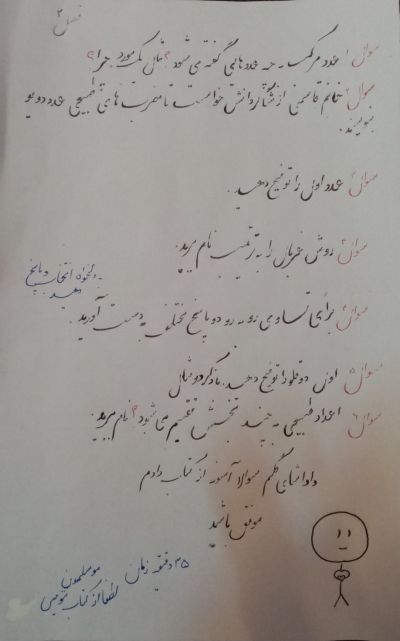 فصل ۲
سوال ۱ عدد مرکب به چه عددهایی گفته می شود؟ مثالی یک مورد چرا؟
سوال ۲ خانم قاسمی از شاگردانش خواست تا مضرب های طبیعی عدد دو رو
بنویسند.
سوال ۳ عدد اول را توضیح دهید.
سوال ۴ روش غربال را به ترتیب نام ببرید.
دلخواه انتخاب و پاسخ
دهید
سوال ۵ برای تساوی رو به رو دو پاسخ مختلف بدست آورید.
سوال ۵ اول دوقلو را توضیح دهید. با ذکر دو مثال
سوال ۶ اعداد طبیعی به چند بخش تقسیم می شود؟ نام ببرید.
داداشای گلم سوالا آسونه از کتاب دادم
موفق باشید
۳۵ دقیقه زمان
لطفا از کتاب ننویس